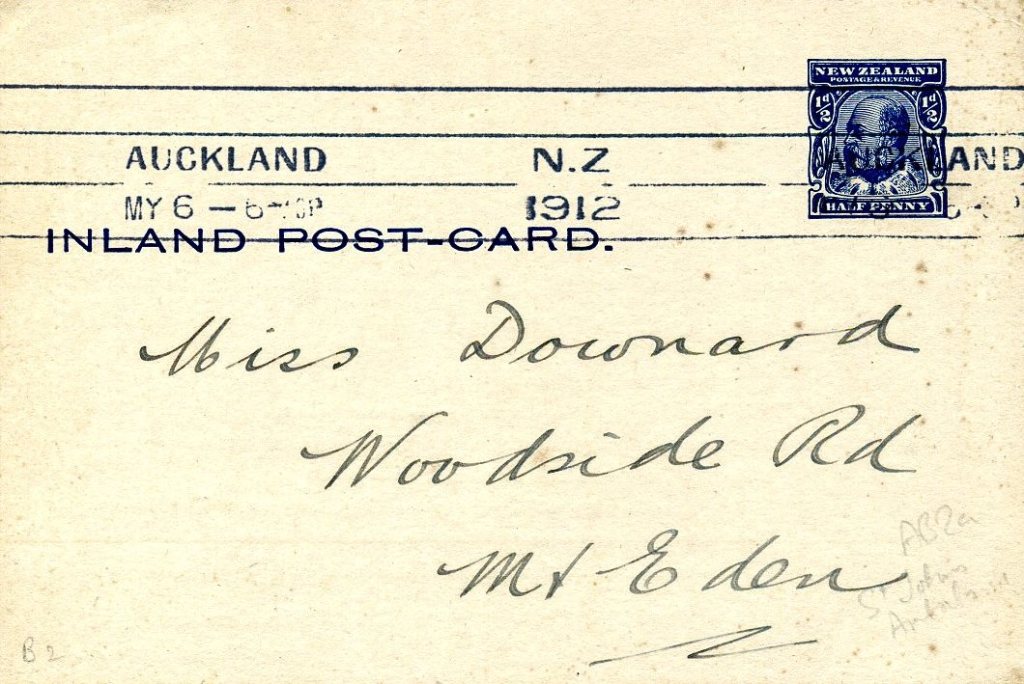 NEW ZEALAND
POSTAGE & REVENUE
½d ½d
HALF PENNY
AUCKLAND N.Z AUCKLAND
MY 6 — 6 P 1912
INLAND POST-CARD.
Miss Downard
Woodside Rd
Mt Eden
AB2a
St Johns
B2